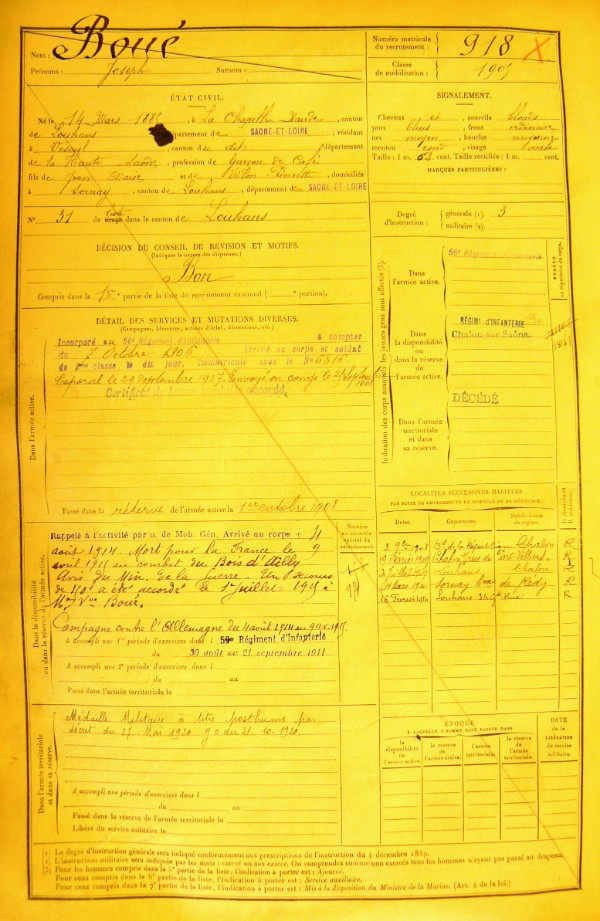 Nom : Boué
Prénoms : Joseph Surnom :
Numéro matricule du recrutement : 918
Classe de mobilisation : 1905
ÉTAT CIVIL.
Né le 14 Mars 1885, à La Chapelle Naude, canton
de Louhans, département de SAONE-ET-LOIRE, résidant
à Vesoul, canton du dit, département
de la Haute Saône, profession de Garçon de Café
fils de Jean Marie et de Pierrette, domiciliés
à Sornay, canton de Louhans, département de SAONE-ET-LOIRE
N° 31 de liste dans le canton de Louhans
SIGNALEMENT.
Cheveux et sourcils blonds
yeux bleus, front ordinaire
nez moyen, bouche moyenne
menton rond, visage ovale
Taille : 1 m. cent. Taille rectifiée : 1 m. cent.
MARQUES PARTICULIÈRES :
Degré d'instruction : générale (1). 3
militaire (2).
DÉCISION DU CONSEIL DE REVISION ET MOTIFS.
(Indiquer la nature des dispenses.)
Bon
Compris dans la 1re partie de la liste du recrutement cantonal ( portion).
DÉTAIL DES SERVICES ET MUTATIONS DIVERSES.
(Campagnes, blessures, actions d'éclat, décorations, etc.)
Dans l'armée active.
Incorporé au 56e Régiment d'Infanterie à compter
du 7 Octobre 1906. Arrivé au corps et soldat
de 2me classe le dit jour. Immatriculé sous le No
Caporal le 29 Septembre 1907. Envoyé en congé le
Certificat de accordé.
Passé dans la réserve de l'armée active le 1er octobre 1908
Indication des corps auxquels les jeunes gens sont affectés (3).
Dans l'armée active.
56e Régiment d'Infanterie
Dans la disponibilité ou dans la réserve de l'armée active.
RÉGIMENT D'INFANTERIE
Chalon-sur-Saône.
Dans l'armée territoriale et dans sa réserve.
DÉCÉDÉ
Dans la disponibilité ou dans la réserve de l'armée active.
Rappelé à l'activité par o. de Mob. Gén. Arrivé au corps le 4
août 1914. Mort pour la France le 9
avril 1915 au combat du Bois d'Ailly
Avis du Min. de la Guerre. Un secours
de 150f a été accordé le 1er juillet 1915 à
Mme Vve Boué.
Campagne contre l'Allemagne du 4 août 1914 au 9 av. 1915.
A accompli une 1re période d'exercices dans l 56e Régiment d'Infanterie
du 30 août au 21 septembre 1911
A accompli une 2e période d'exercices dans l
du au
Passé dans l'armée territoriale le
LOCALITÉS SUCCESSIVES HABITÉES
PAR SUITE DE CHANGEMENTS DE DOMICILE OU DE RÉSIDENCE.
Dates. Communes. Subdivisions de région.
Chalon R
Chalon
Sornay
Louhans
Dans l'armée territoriale et dans sa réserve.
Médaille Militaire à titre posthume par
décret du 27 Mai 1920. J.O. du 21. 10. 1920.
A accompli une période d'exercices dans l
du au
Passé dans la réserve de l'armée territoriale le
Libéré du service militaire le
ÉPOQUE
À LAQUELLE L'HOMME DOIT PASSER DANS
la disponibilité de l'armée active. la réserve de l'armée active. l'armée territoriale. la réserve de l'armée territoriale.
DATE DE LA LIBÉRATION du service militaire.
(1) Le degré d'instruction générale sera indiqué conformément aux prescriptions de l'instruction du 4 décembre 1889.
(2) L'instruction militaire sera indiquée par les mots : exercé ou non exercé. On comprendra comme non exercés tous les hommes n'ayant pas passé au drapeau.
(3) Pour les hommes compris dans la 5e partie de la liste, l'indication à porter est : Ajourné.
Pour ceux compris dans la 6e partie de la liste, l'indication à porter est : Service auxiliaire.
Pour ceux compris dans la 7e partie de la liste, l'indication à porter est : Mis à la disposition du Ministre de la Marine. (Art. 4 de la loi.)